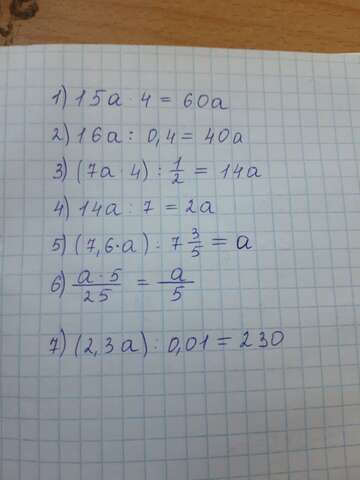 1) 15a · 4 = 60a
2) 16a : 0,4 = 40a
3) (7a · 4) : 1/2 = 14a
4) 14a : 7 = 2a
5) (7,6 · a) : 7 3/5 = a
6) a · 5 / 25 = a / 5
7) (2,3a) : 0,01 = 230